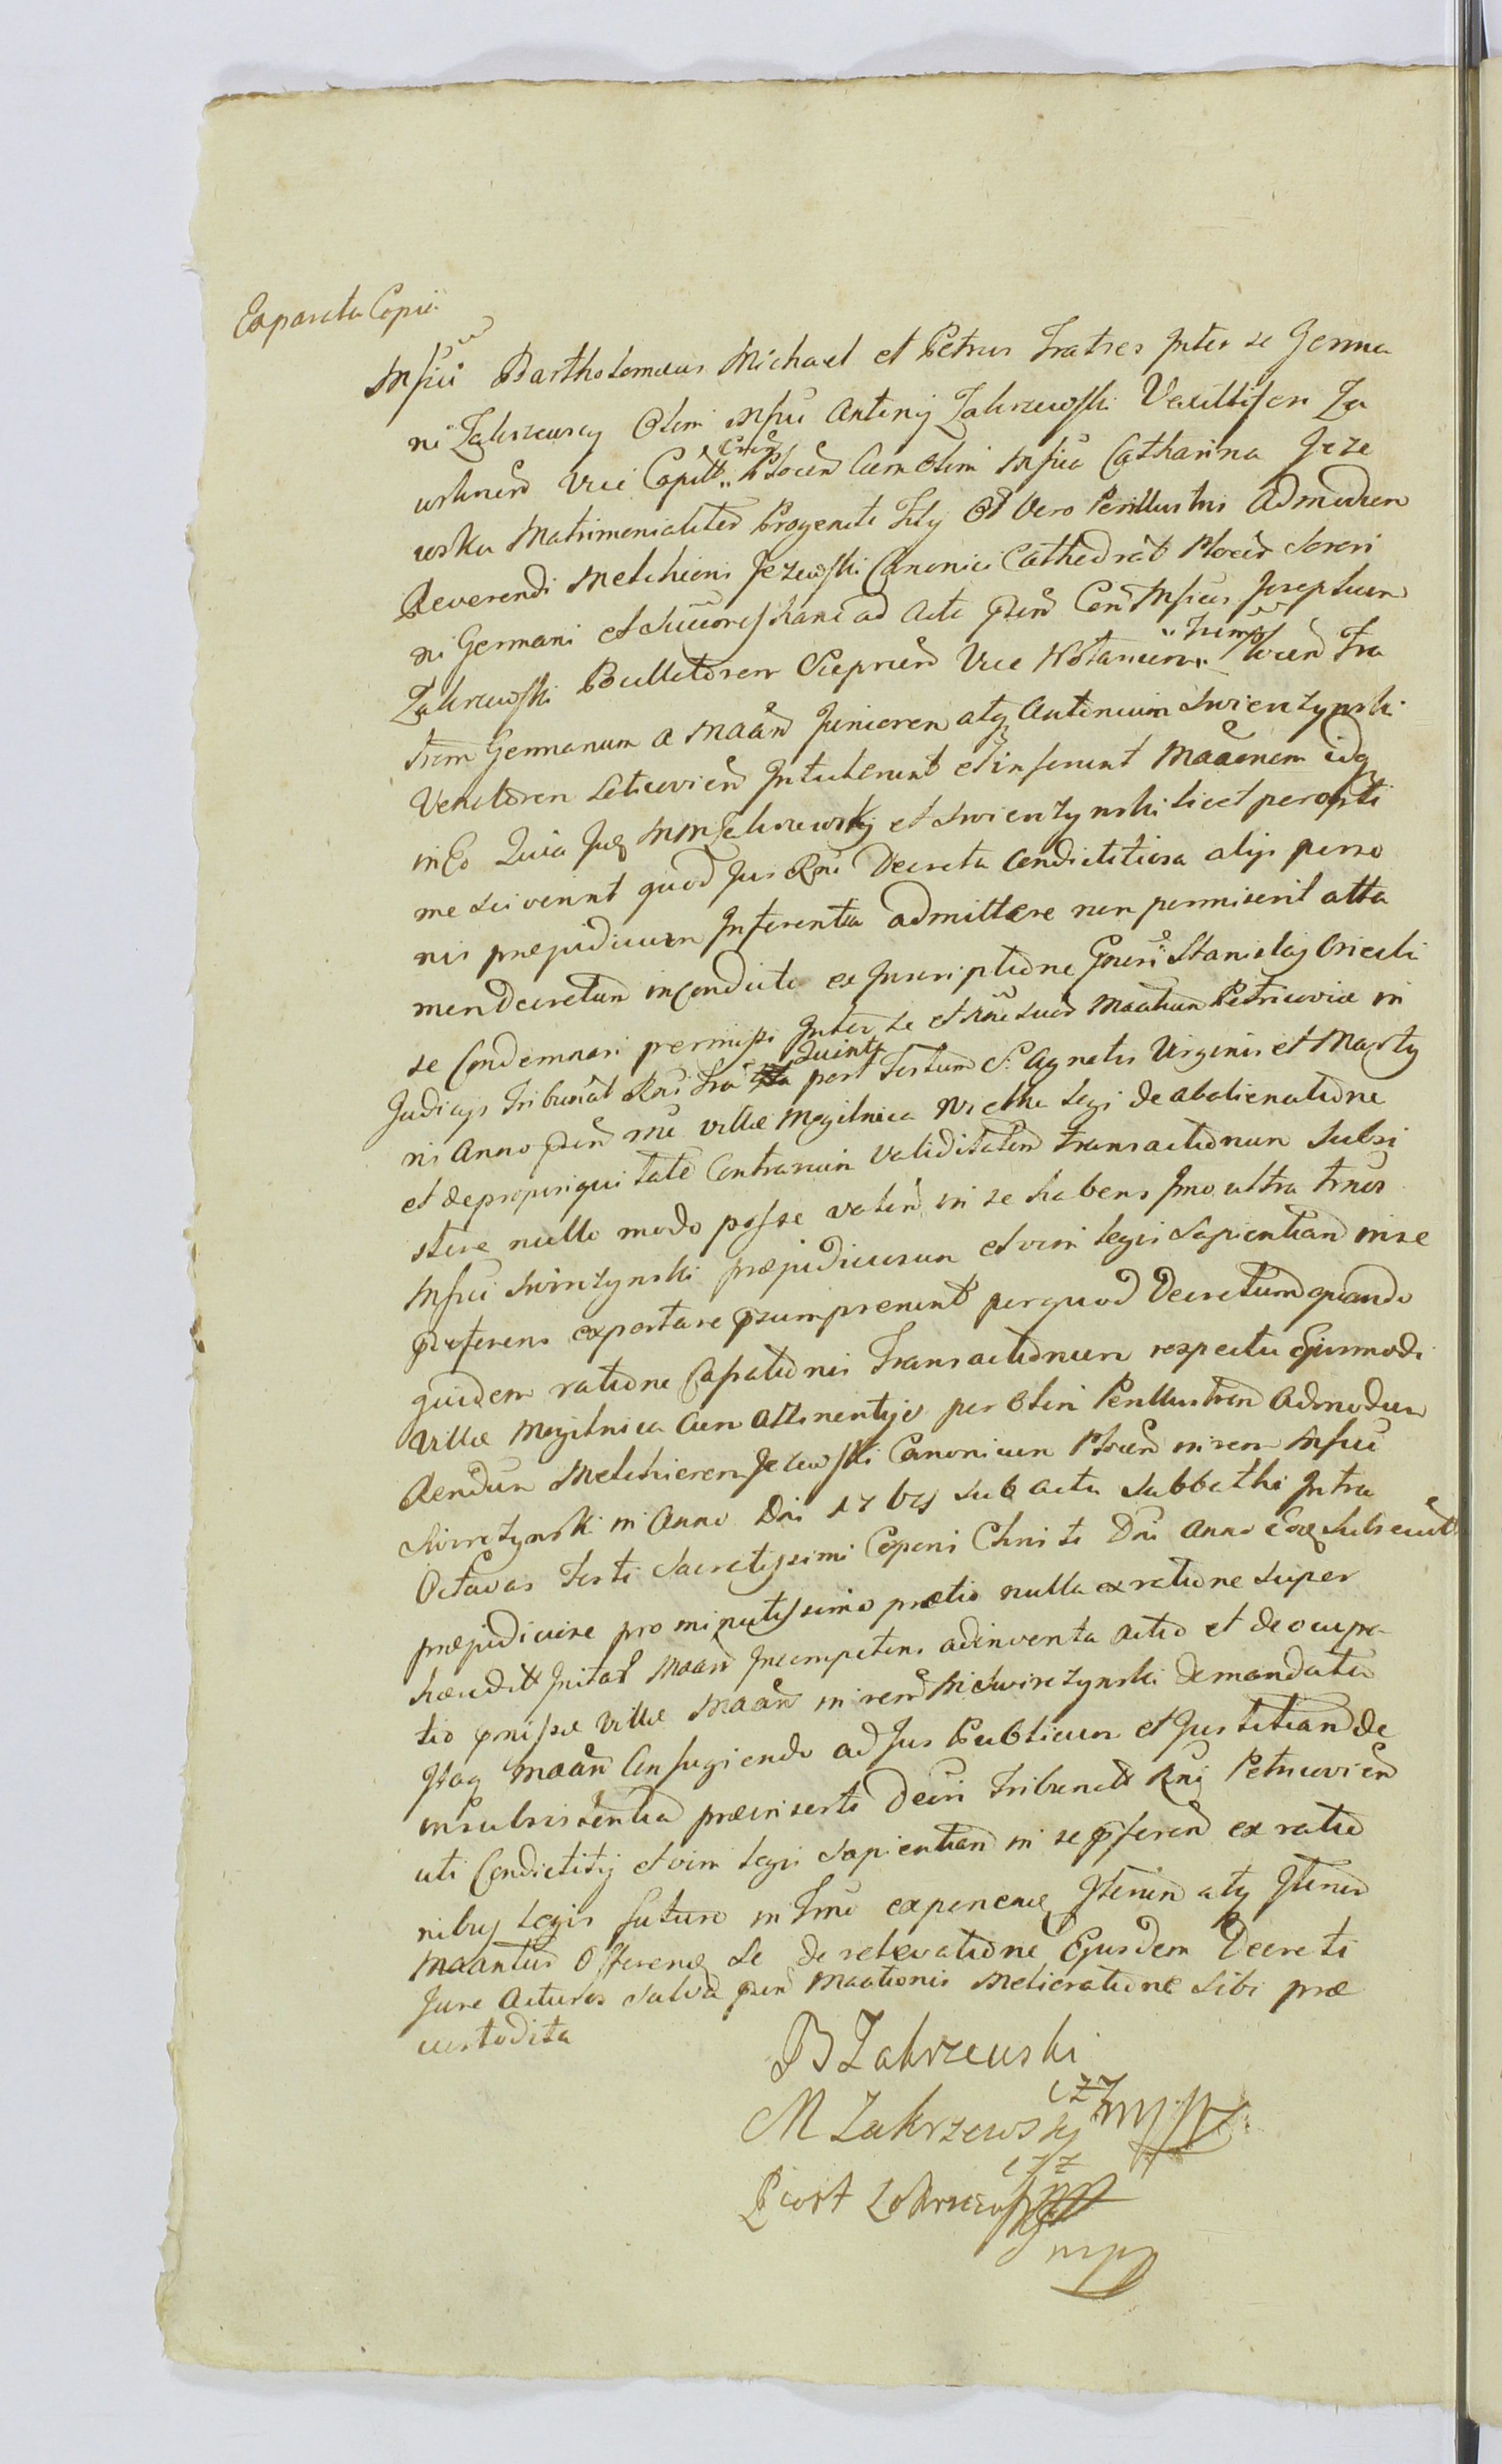 Exparcta Copia
Mfici Bartholomeus Michael et Petrus Fratres Inter se Germa
ni Zakrzewscy Olim Mfici Antonij Zakrzewski Vexilliferi Za
wskrnen Vice Capitt Plocen cum olim Mfica Catharina Jeze
wska Matrimonialiter Progeniti Filij Et Vero Perillustris Admodum
Reverendi Melchioris Jezewski Canonici Cathedral Plocen Sorori
ni Germani et Successores hanc ad Acta pstn Con Mficos Josephum
Zakrzewski Pocillatorem Sieprcen Vice Notarium Plocen Fra
trem Germanum a Maan Juniorem atq Antonium Swierzynski
Venatorem Leticovien Intulerunt et inferunt Maaonem idq
in Eo Quia Iidq MM Zakrzewskj et Swierzynski licet per opti
me sciverint quod Jus Rni Decreta Condictitiosa alijs perso
nis præjudicium Inferentia admittere non permiserit atta
men Decretum in Condicto ex Inscriptione Gnsi Stanislaj Osiecki
se Condemnari permissi Inter se et Mficum Maatum Petricoviæ in
Judicijs Tribunal Rni Fra Quinta post Festum S. Agnetis Virginis et Marty
ris Anno pstn rne villæ Mogilnica Wielka Legi de abalienatione
et de propinquitate Contrarium Validitatem transactionum Subsi
stere nullo modo posse valen in se habens Imo ultra trnos
Mfici Swirzynski præjudiciosum et vim legis Sapientiam in se
præferens exportare psumpserunt per quod Decretum quando
quidem ratione Cassationis Transactionum respectu Ejusmodi
Villæ Mogilnica Cum Attinentijs per Olim Perillustrem Admodum
Rendum Melchiorem Jezewski Canonicum Plocen in rem Mfici
Swirczynski in Anno Dni 17 sub actu Sabbathi Intra
Octavas Festi Sacratissimi Corporis Christi Dni Anno eodq Subsecut
præjudiciose pro minutissimo prætio nulla ex ratione super
hæredit Juitat Maan Incompetens adinventa actio et de occupa
tio pmissæ Villæ Maan in rem M Swirczynski demandata
Itaq Maan Confugiendo ad Jus Publicum et Justitiam de
insubsistentia præinserti Decri Tribunalt Rni Petricovien
uti Condictitij et vim legis Sapientiam in se pferen ex ratio
nibus Legis futuro in Trno exponend Iterum atq Iterum
Maantur Offerend se de relevatione Ejusdem Decreti
Jure Acturos Salva pstn Maationis Melioratione Sibi præ
custodita
B Zakrzewski
M Zakrzewskj mpp
Piotr Zakrzewski
mpp